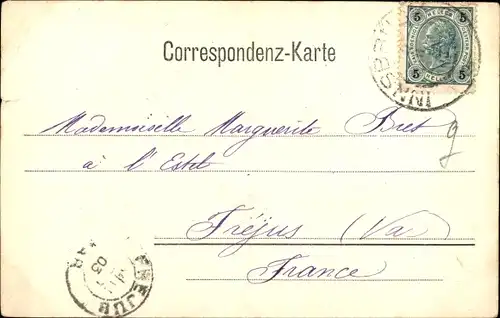 Correspondenz-Karte
5 5
5 HELLER 5
INNSBR
Mademoiselle Marguerite Bret
à l'Estel
9
Fréjus (Va)
France
FREJUS
03